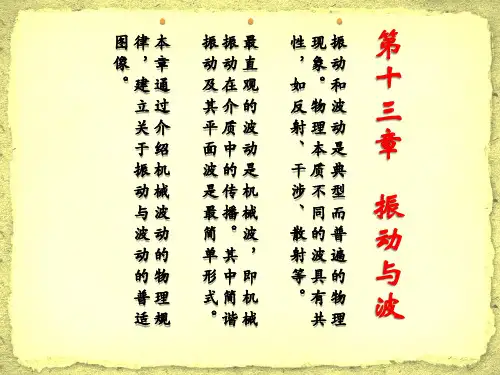 第十三章 振动与波
振动和波动是典型而普遍的物理
现象。物理本质不同的波具有共
性,如反射、干涉、散射等。
最直观的波动是机械波,即机械
振动在介质中的传播。其中简谐
振动及其平面波是最简单形式。
本章通过介绍机械波动的物理规
律,建立关于振动与波动的普适
图像。